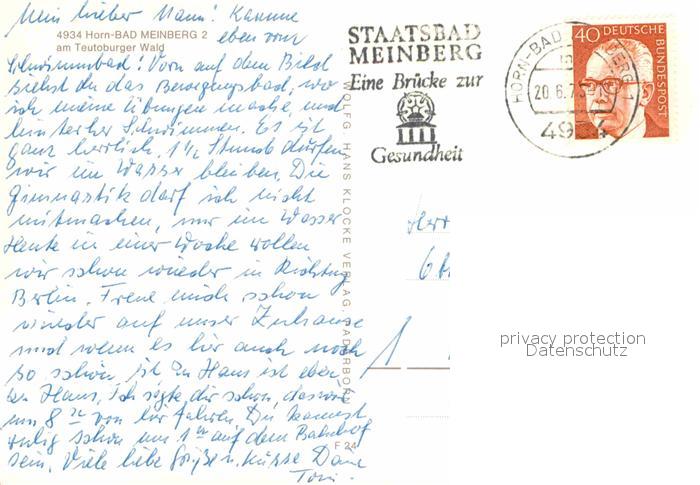 Mein lieber Mann! Komme
4934 Horn-BAD MEINBERG 2
am Teutoburger Wald
eben vom
Schwimmbad! Vorn auf dem Bild
siehst du das Bewegungsbad, wo
ich meine Übungen mache, und
hinterher Schwimmen. Es ist
ganz herrlich. 1½ Stund dürfen
wir im Wasser bleiben. Die
Gimnastik darf ich nicht
mitmachen, nur im Wasser
Heute in einer Woche wollen
wir schon wieder in Richtung
Berlin. Freue mich schon
wieder auf unser Zuhause
und wenn es hier auch noch
so schön ist, zu Haus ist eben
zu Haus. Ich sagte dir schon, dass wir
um 8 von hier fahren. Du kannst
ruhig schon um 1 auf dem Bahnhof
sein. Viele liebe Grüße u. Küsse Deine
Toni.
WOLFG. HANS KLOCKE VERLAG, PADERBORN
F 24
STAATSBAD
MEINBERG
Eine Brücke zur
Gesundheit
HORN-BAD MEINBERG 1
20.6.7
49
40 DEUTSCHE
BUNDESPOST
Herr
1
privacy protection
Datenschutz